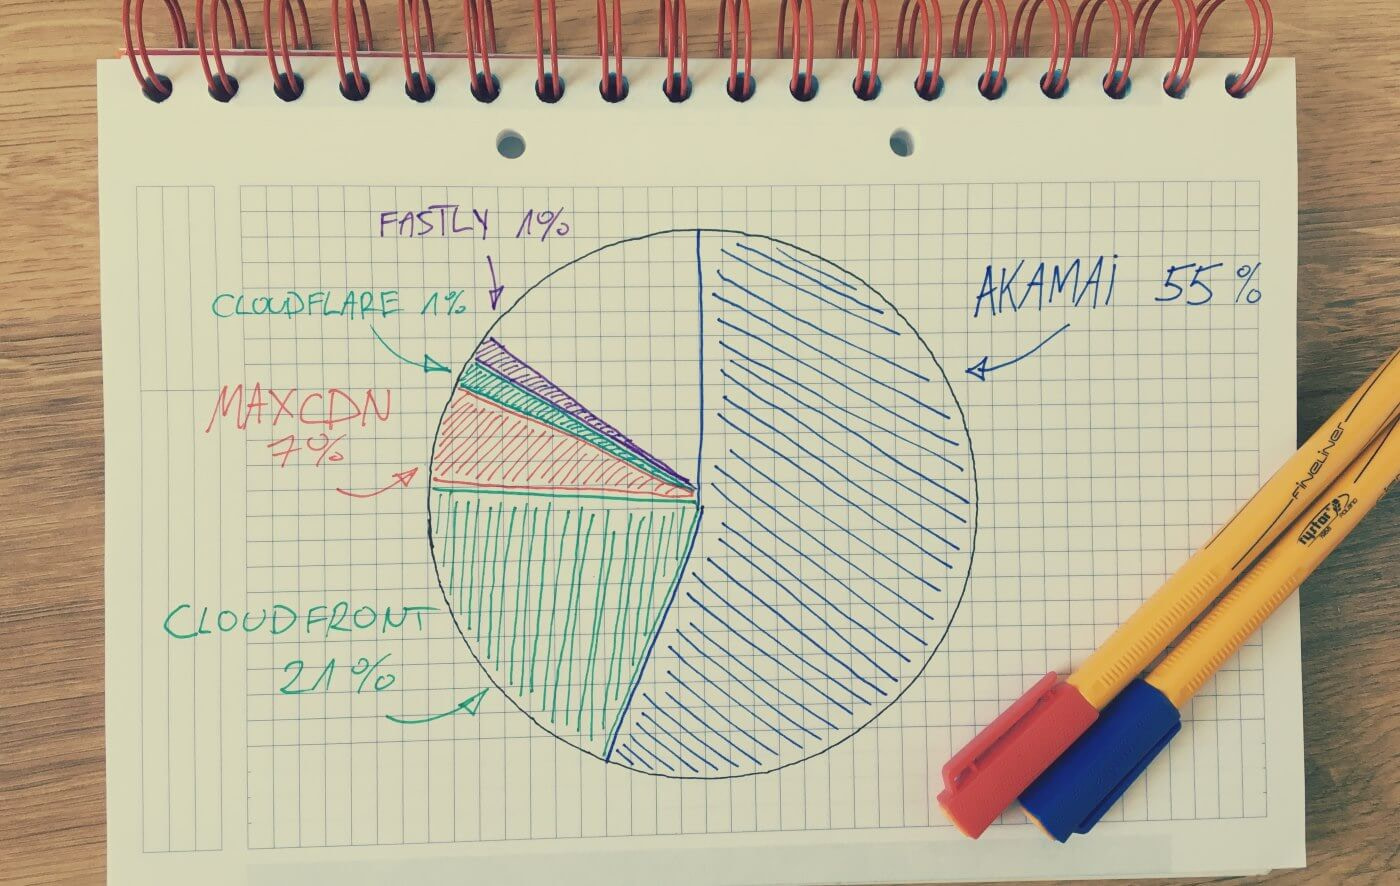 FASTLY 1%
CLOUDFLARE 1%
AKAMAI 55%
MAXCDN
7%
CLOUDFRONT
21%
FINELINER
rystor